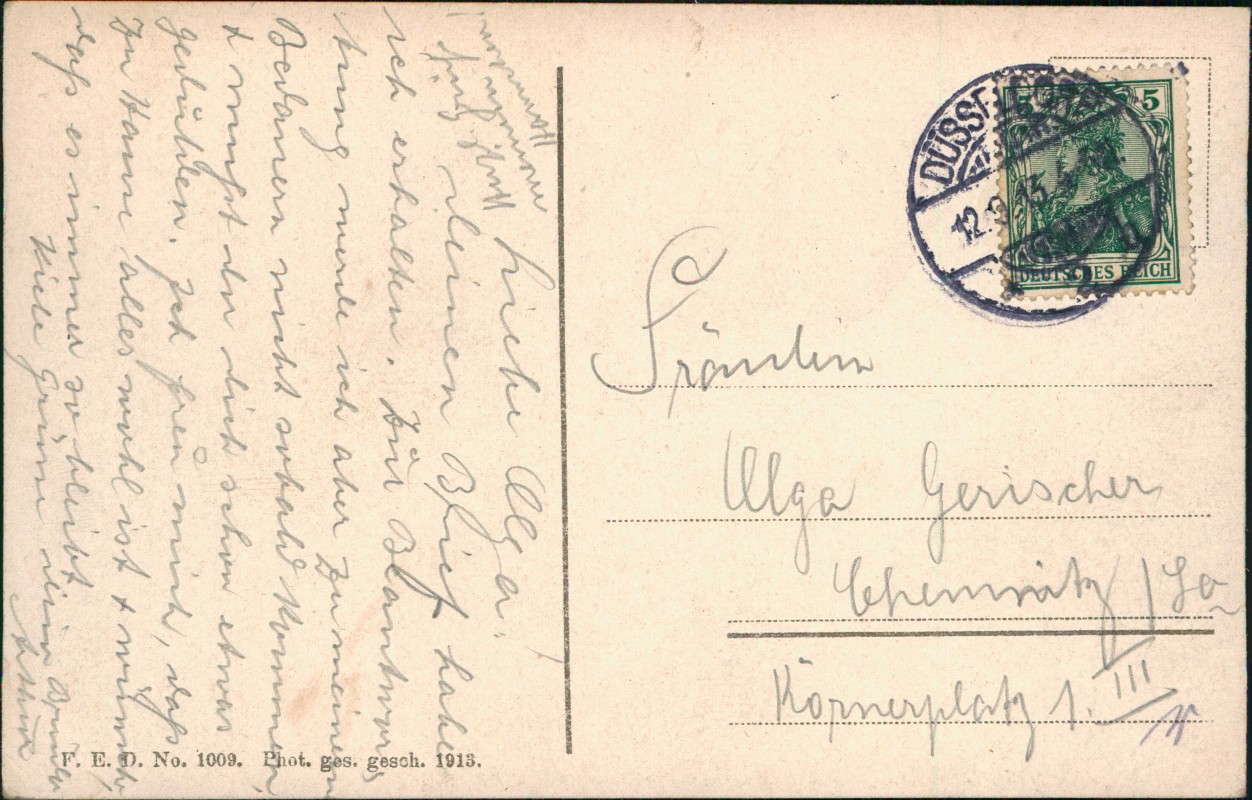 Liebe Olga.
deinen Brief habe
ich erhalten. Zur Beantwor
tung werde ich aber zu meinem
Bedauern nicht sobald kommen,
& mußt du dich schon etwas
gedulden. Ich freu mich, daß
zu Hause alles wohl ist & wünsche,
daß es immer so bleibt.
Viele Grüße dein Bruder
Arthur
F. E. D. No. 1009. Phot. ges. gesch. 1913.
DÜSSELDORF
12.9.13.5
5 5
DEUTSCHES REICH
Fräulein
Olga Gerischer
Chemnitz / Sa
Körnerplatz 1. III